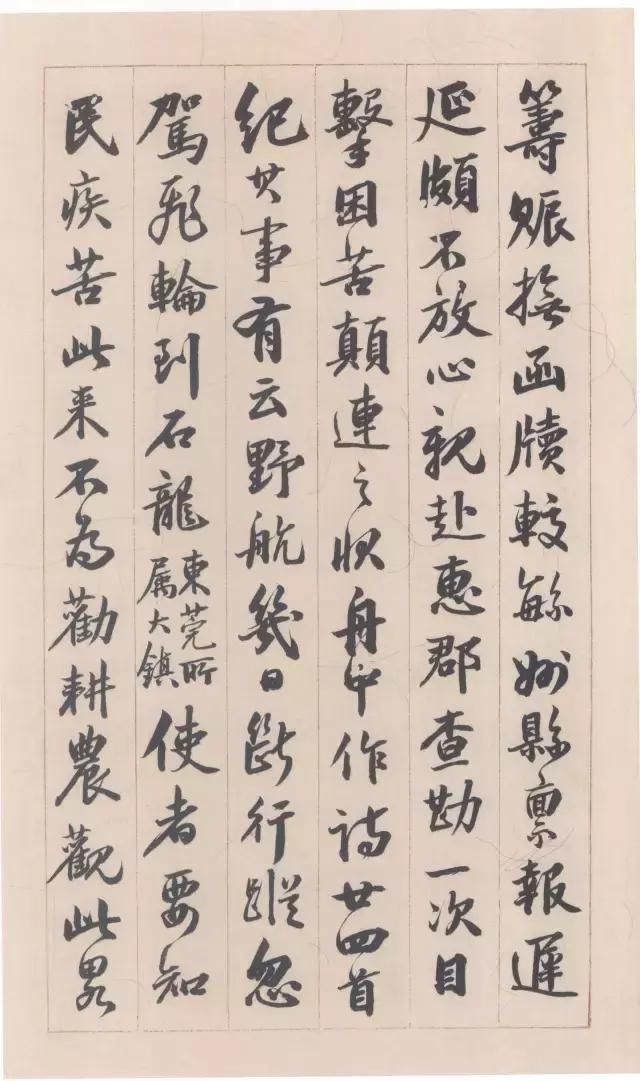 籌賑撫函牘較緐州縣稟報遲
延頗不放心親赴惠郡查勘一次目
擊困苦顛連之狀舟中作詩廿四首
紀其事有云野航幾日斷行蹤忽
駕飛輪到石龍東莞所属大鎮使者要知
民疾苦此来不為勸耕農觀此畧